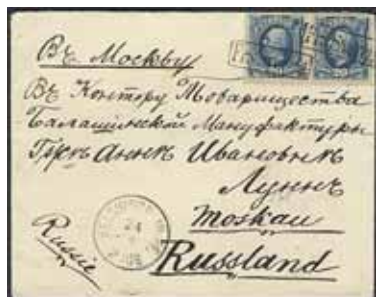 Въ Москву
Въ Контору Товарищества
Балашинской Мануфактуры
Аннѣ Ивановнѣ
Луннъ
Moskau
Russie
Russland